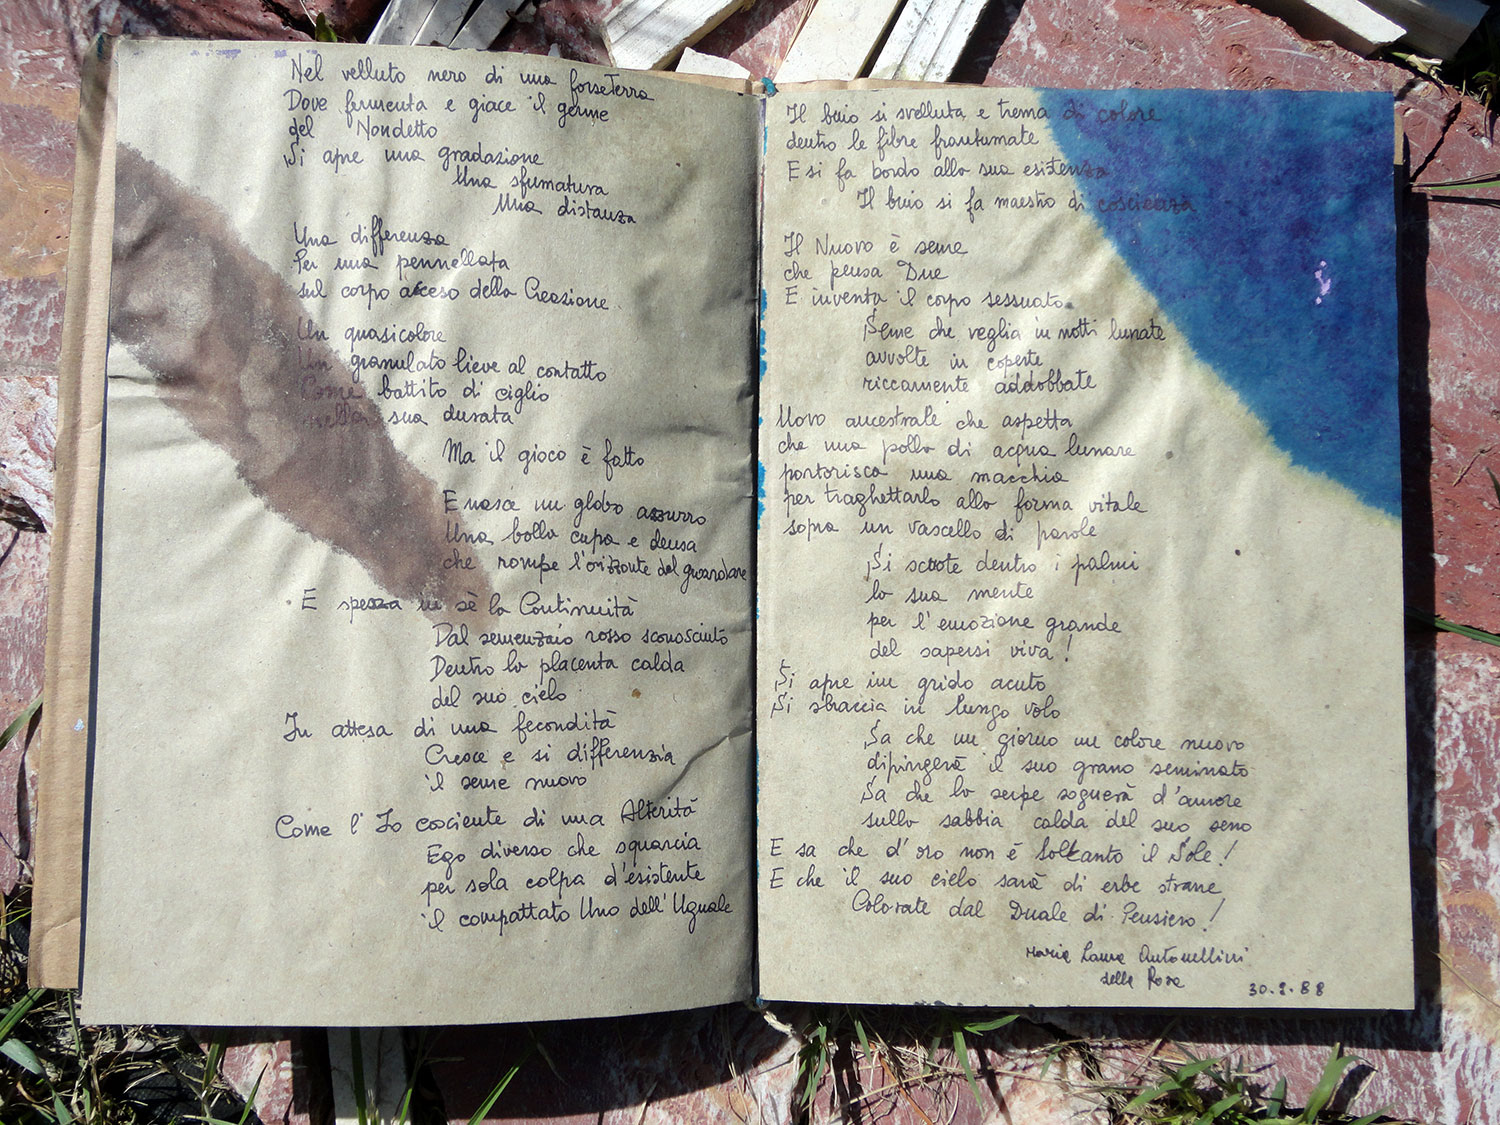 Nel velluto nero di una forseTerra
Dove fermenta e giace il germe
del Nondetto
Si apre una gradazione
Una sfumatura
Una distanza
Una differenza
Per una pennellata
sul corpo acceso della Creazione
Un quasicolore
Un granulato lieve al contatto
Come battito di ciglio
nella sua durata
Ma il gioco è fatto
E nasce un globo azzurro
Una bolla cupa e densa
che rompe l'orizzonte del guardare
E spezza in sè la Continuità
Dal semenzaio rosso sconosciuto
Dentro la placenta calda
del suo cielo
In attesa di una fecondità
Cresce e si differenzia
il seme nuovo
Come l'Io cosciente di una Alterità
Ego diverso che squarcia
per sola colpa d'esistente
il compattato Uno dell'Uguale
Il buio si svelluta e trema di colore
dentro le fibre frantumate
E si fa bordo alla sua esistenza
Il buio si fa maestro di coscienza
Il Nuovo è seme
che pensa Due
E inventa il corpo sessuato
Seme che veglia in notti lunate
avvolte in coperte
riccamente addobbate
Uovo ancestrale che aspetta
che una polla di acqua lunare
partorisca una macchia
per traghettarlo alla forma vitale
sopra un vascello di parole
Si scuote dentro i palmi
la sua mente
per l'emozione grande
del sapersi viva!
Si apre in grido acuto
Si sbraccia in lungo volo
Sa che un giorno un colore nuovo
dipingerà il suo grano seminato
Sa che la serpe sognerà d'amore
sulla sabbia calda del suo seno
E sa che d'oro non è Soltanto il Sole!
E che il suo cielo sarà di erbe strane
Colorate dal Duale di Pensiero!
Maria Laura Antonellini
della Rosa
88